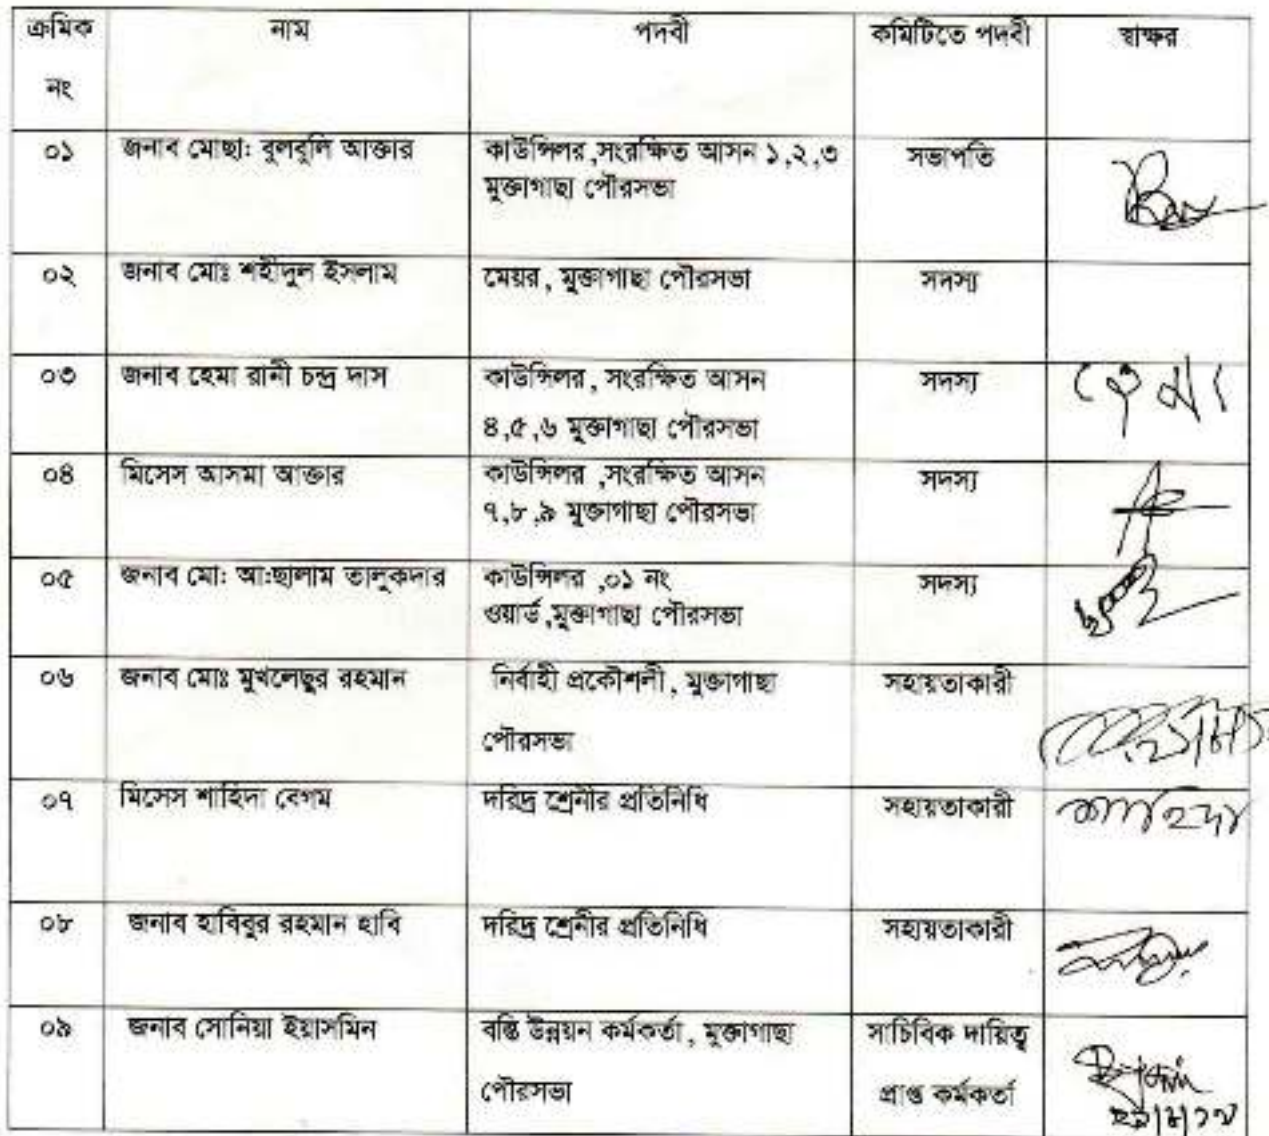 ক্রমিক নং নাম পদবী কমিটিতে পদবী স্বাক্ষর
০১ জনাব মোছা: বুলবুলি আক্তার কাউন্সিলর ,সংরক্ষিত আসন ১,২,৩ সভাপতি
মুক্তাগাছা পৌরসভা
০২ জনাব মোঃ শহীদুল ইসলাম মেয়র , মুক্তাগাছা পৌরসভা সদস্য
০৩ জনাব হেমা রানী চন্দ্র দাস কাউন্সিলর , সংরক্ষিত আসন সদস্য হেমা
৪,৫,৬ মুক্তাগাছা পৌরসভা
০৪ মিসেস আসমা আক্তার কাউন্সিলর ,সংরক্ষিত আসন সদস্য
৭,৮,৯ মুক্তাগাছা পৌরসভা
০৫ জনাব মো: আ:ছালাম তালুকদার কাউন্সিলর ,০১ নং সদস্য
ওয়ার্ড,মুক্তাগাছা পৌরসভা
০৬ জনাব মোঃ মুখলেছুর রহমান নির্বাহী প্রকৌশলী , মুক্তাগাছা সহায়তাকারী
পৌরসভা
০৭ মিসেস শাহিদা বেগম দরিদ্র শ্রেনীর প্রতিনিধি সহায়তাকারী শাহিদা
০৮ জনাব হাবিবুর রহমান হাবি দরিদ্র শ্রেনীর প্রতিনিধি সহায়তাকারী
০৯ জনাব সোনিয়া ইয়াসমিন বস্তি উন্নয়ন কর্মকর্তা , মুক্তাগাছা সাচিবিক দায়িত্ব
পৌরসভা প্রাপ্ত কর্মকর্তা